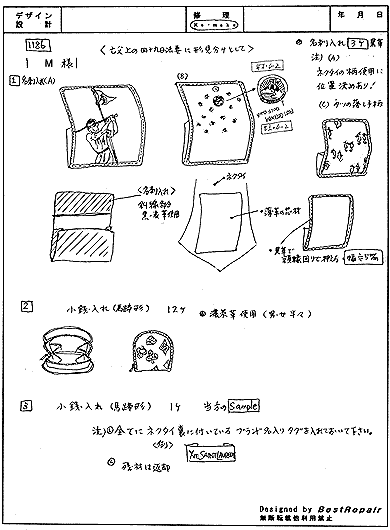 デザイン 設計
修理
Re-make
年 月 日
1186
M 様
〈亡父上の四十九日法要に形見分けとして〉
名刺入れ 3ケ 黒革
注) (A)
ネクタイの柄使用に
位置決めあり!
(C) うつの落とす柄
1 名刺入れ(A)
(B)
53.6.2
53.6.2
〈名刺入れ〉
斜線部分
黒い革使用
ネクタイ
薄革の芯材
黒革で
額縁回りで押え
2 小銭入れ(馬蹄形) 12ケ
濃茶革使用
3 小銭入れ(馬蹄形) 1ケ 当方のSample
注) 全てにネクタイ裏に付いているブランド名入りタグを入れておいて下さい。
〈例〉
YvesSaintLaurent
残材は返却
Designed by BestRepair
無断転載他利用禁止